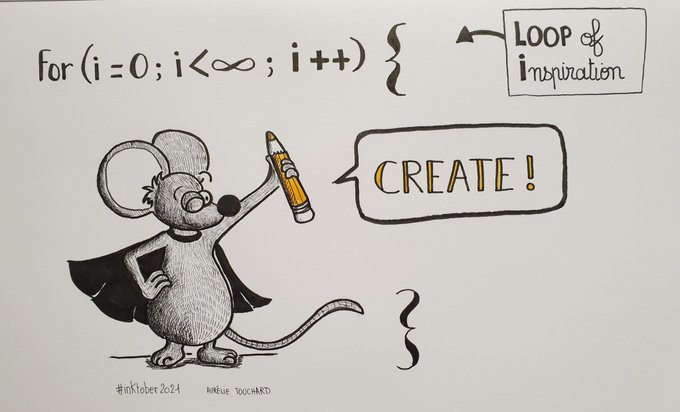 for (i = 0 ; i < ∞ ; i ++) {
LOOP of
inspiration
CREATE !
}
#inktober2021 AURÉLIE TOUCHARD